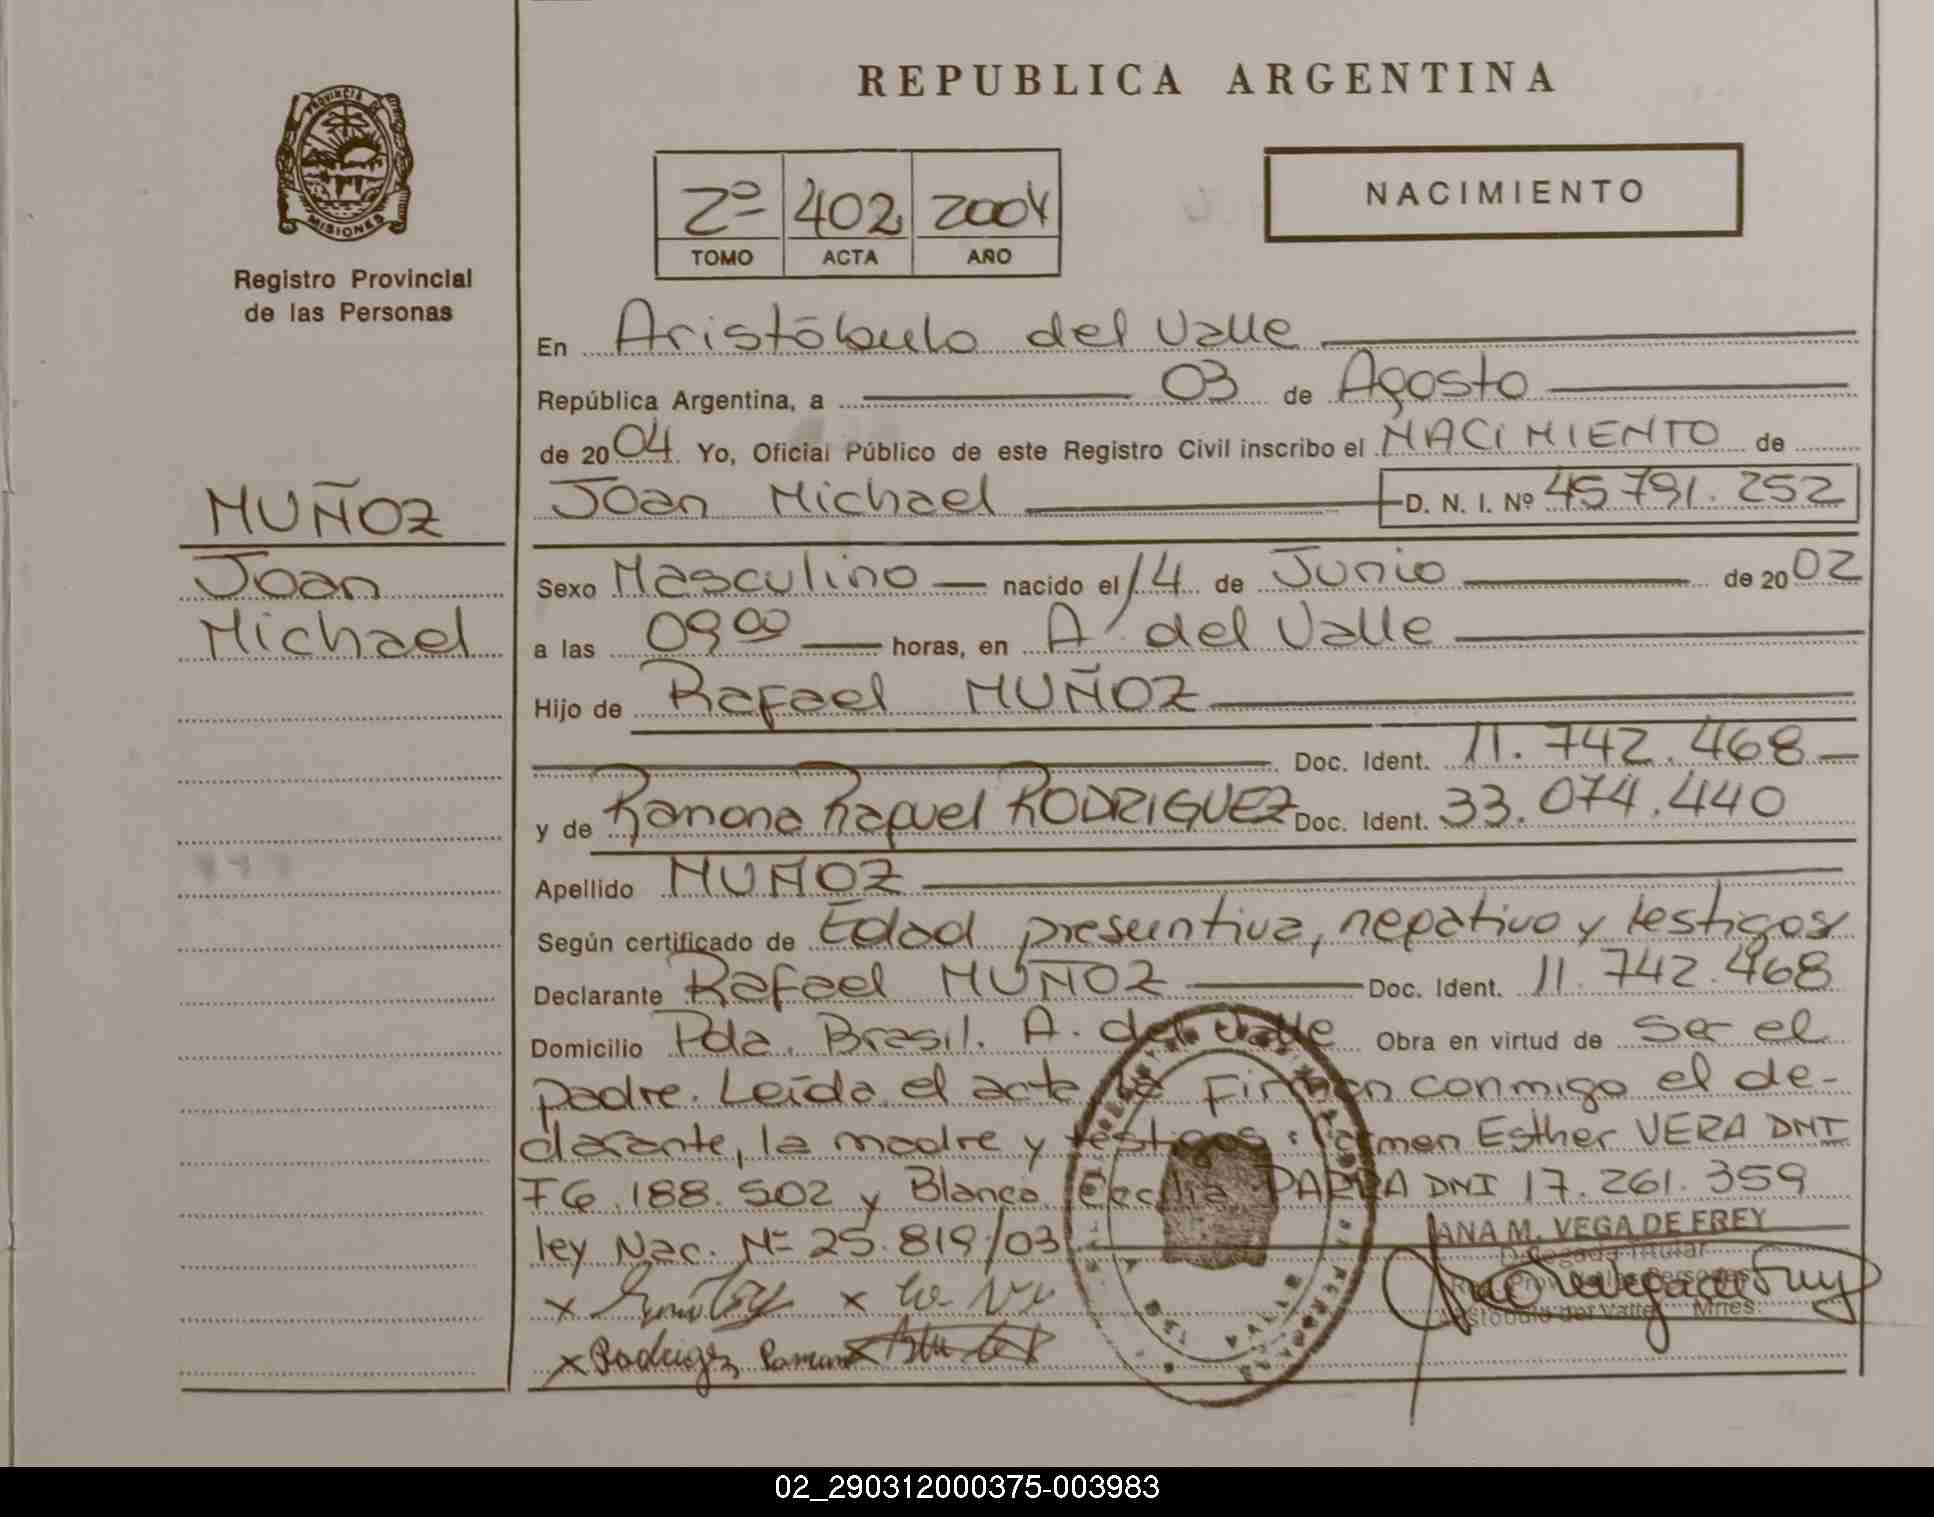 REPUBLICA ARGENTINA
PROVINCIA DE
MISIONES
Registro Provincial
de las Personas
2º 402 2004
TOMO ACTA AÑO
NACIMIENTO
MUÑOZ
Joan
Michael
En Aristóbulo del Valle
República Argentina, a 03 de Agosto
de 2004 Yo, Oficial Público de este Registro Civil inscribo el NACIMIENTO de
Joan Michael D. N. I. Nº 45.791.252
Sexo Masculino nacido el 14 de Junio de 2002
a las 09 00 horas, en A. del Valle
Hijo de Rafael MUÑOZ
Doc. Ident. 11.742.468
y de Ramona Raquel RODRIGUEZ Doc. Ident. 33.074.440
Apellido MUÑOZ
Según certificado de Edad presuntiva, negativo y testigos
Declarante Rafael MUÑOZ Doc. Ident. 11.742.468
Domicilio Pda. Brasil. A. del Valle Obra en virtud de ser el
padre. Leída el acta la Firman conmigo el de-
clarante, la madre y testigos: Carmen Esther VERA DNI
F6.188.502 y Blanca Cecilia PARRA DNI 17.261.359
ley Nac. Nº 25.819/03
ANA M. VEGA DE FREY
Delegada Titular
x x
x Rodriguez Ramona x
DEL VALLE
02_290312000375-003983